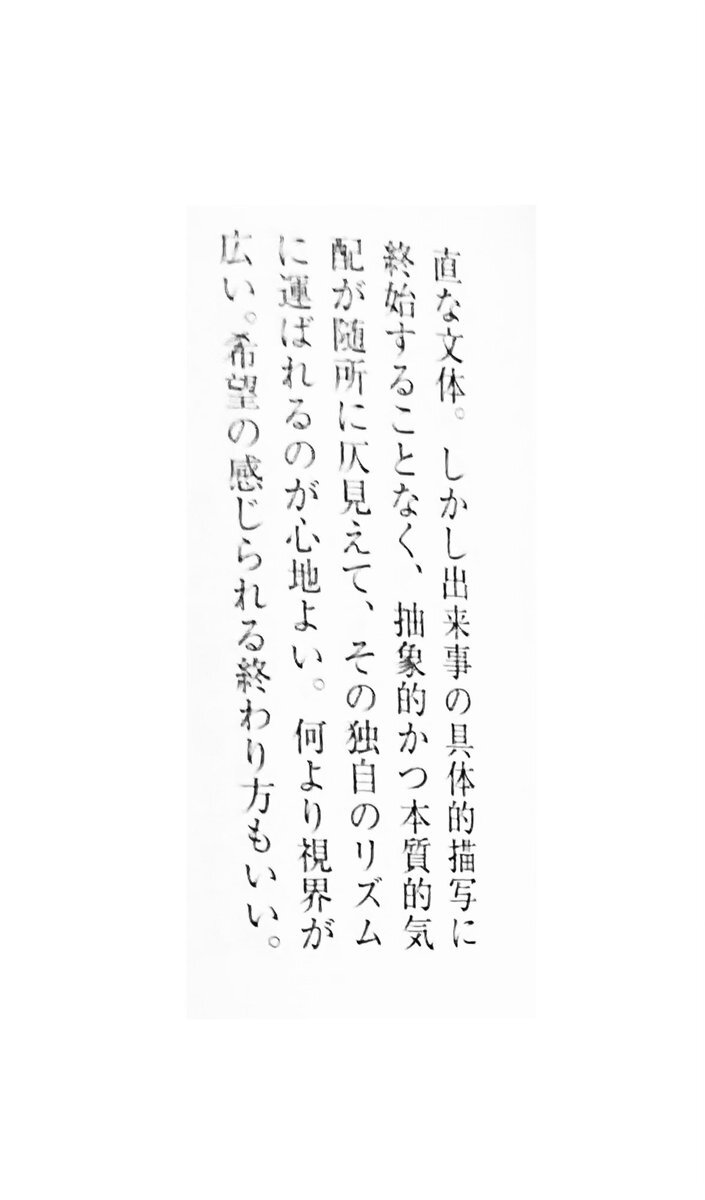 直な文体。しかし出来事の具体的描写に
終始することなく、抽象的かつ本質的気
配が随所に仄見えて、その独自のリズム
に運ばれるのが心地よい。何より視界が
広い。希望の感じられる終わり方もいい。